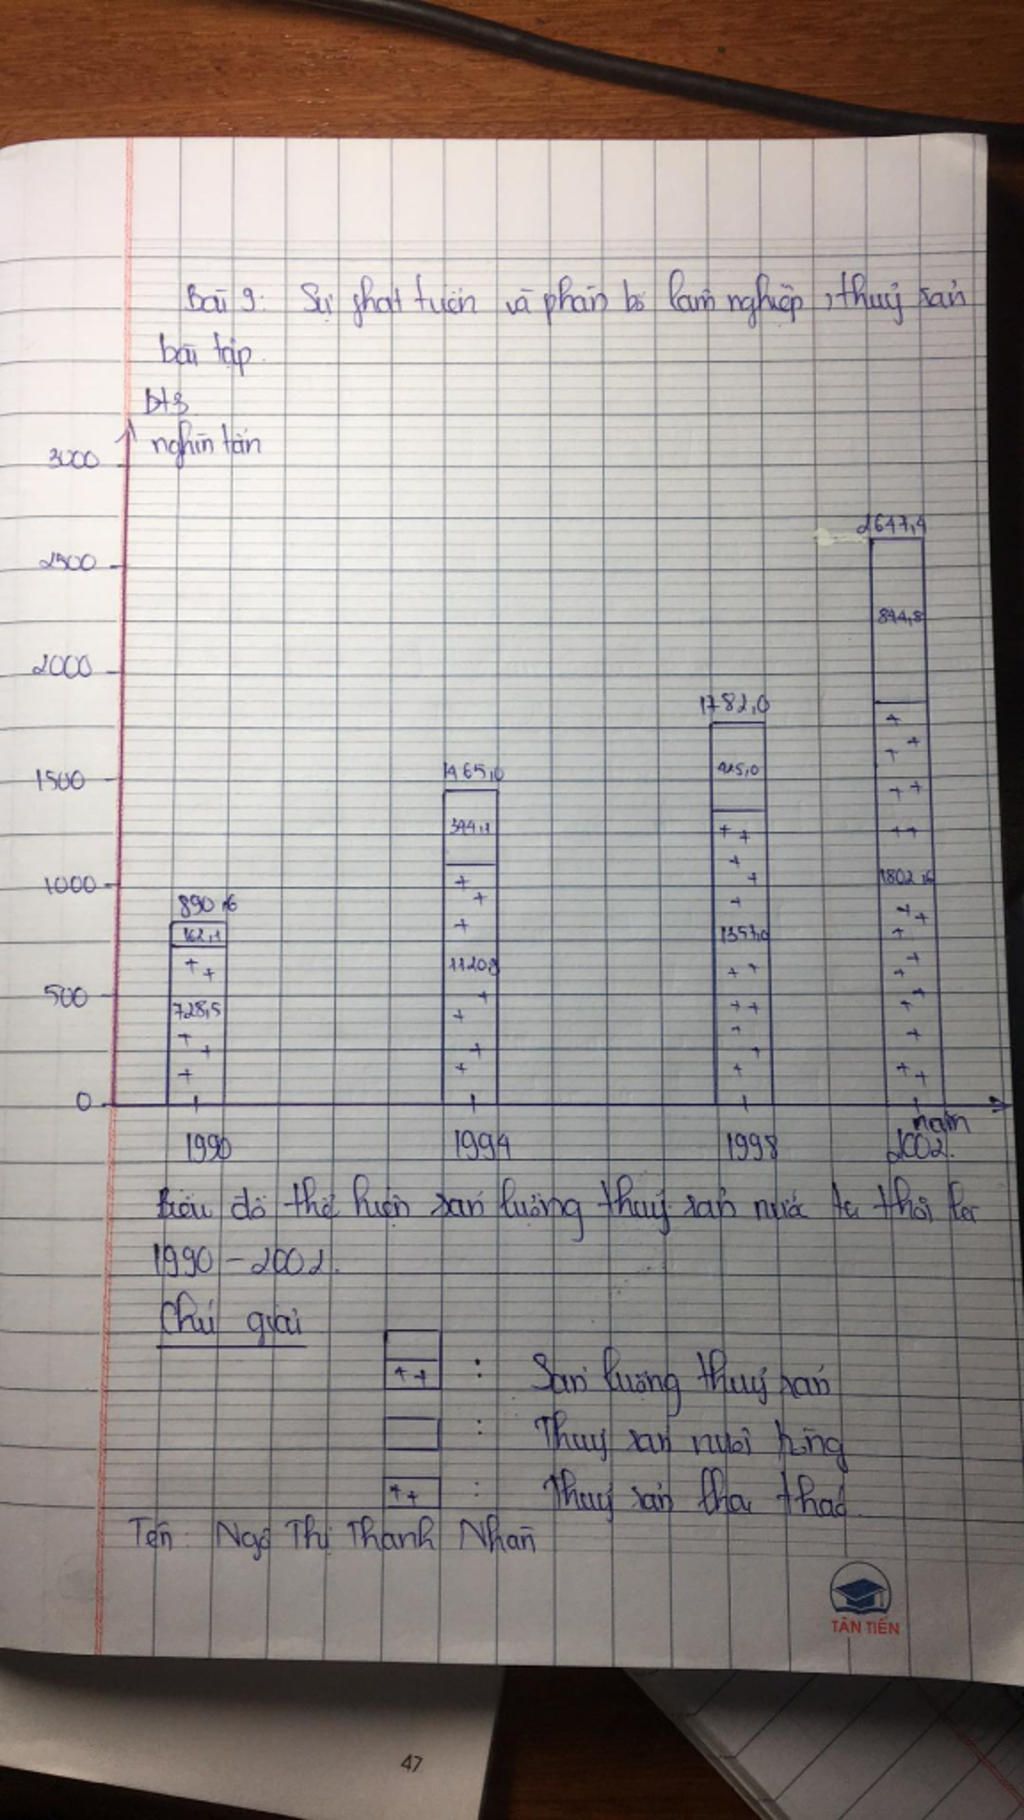 Bài 9: Sự phát triển và phân bố lâm nghiệp, thuỷ sản
bài tập.
nghìn tấn
3000
2500
2000
1500
1000
500
0
890,6
162,1
728,5
1465,0
344,1
1120,9
1782,0
425,0
1357,0
2647,4
844,8
1802,6
năm
1990 1994 1998 2002.
Biểu đồ thể hiện sản lượng thuỷ sản nước ta thời
1990 - 2002.
Chú giải
: Sản lượng thuỷ sản
: Thuỷ sản nuôi trồng
: Thuỷ sản khai thác
Tên: Ngô Thị Thanh Nhàn
TÂN TIẾN
47